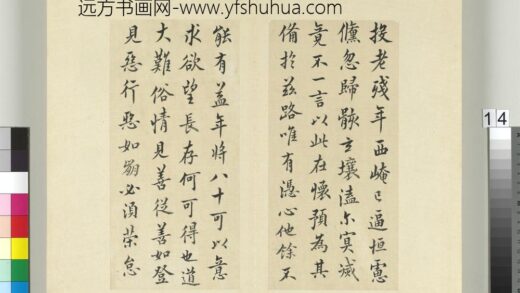 远方书画网-www.yfshuhua.com
投老殘年西崦已逼恒慮
儻忽歸骸玄壤溘尒冥滅
竟不一言以此在懷預為其
備於茲路唯有憑心他餘不
能有益年將八十可以意
求欲望長存何可得也道
大難俗情見善從善如登
見惡行惡如崩必須策怠
14